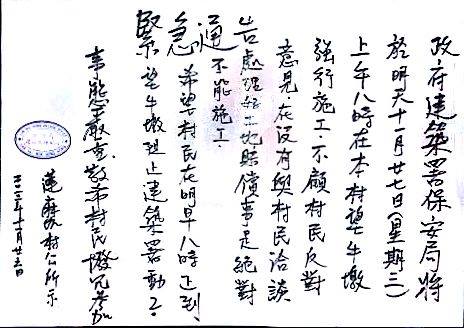 緊急通告
政府建築署保安局將
於明天十一月廿七日(星期三)
上午八時在本村望牛墩
強行施工。不顧村民反對
意見在沒有與村民洽談
處理好土地賠償事是絕對
不能施工。
希望村民在明早八時正到
望牛墩阻止建築署動工。
事態嚴重敬希村民撥冗參加
蓮麻坑村公所示
二〇一三年十一月廿六日